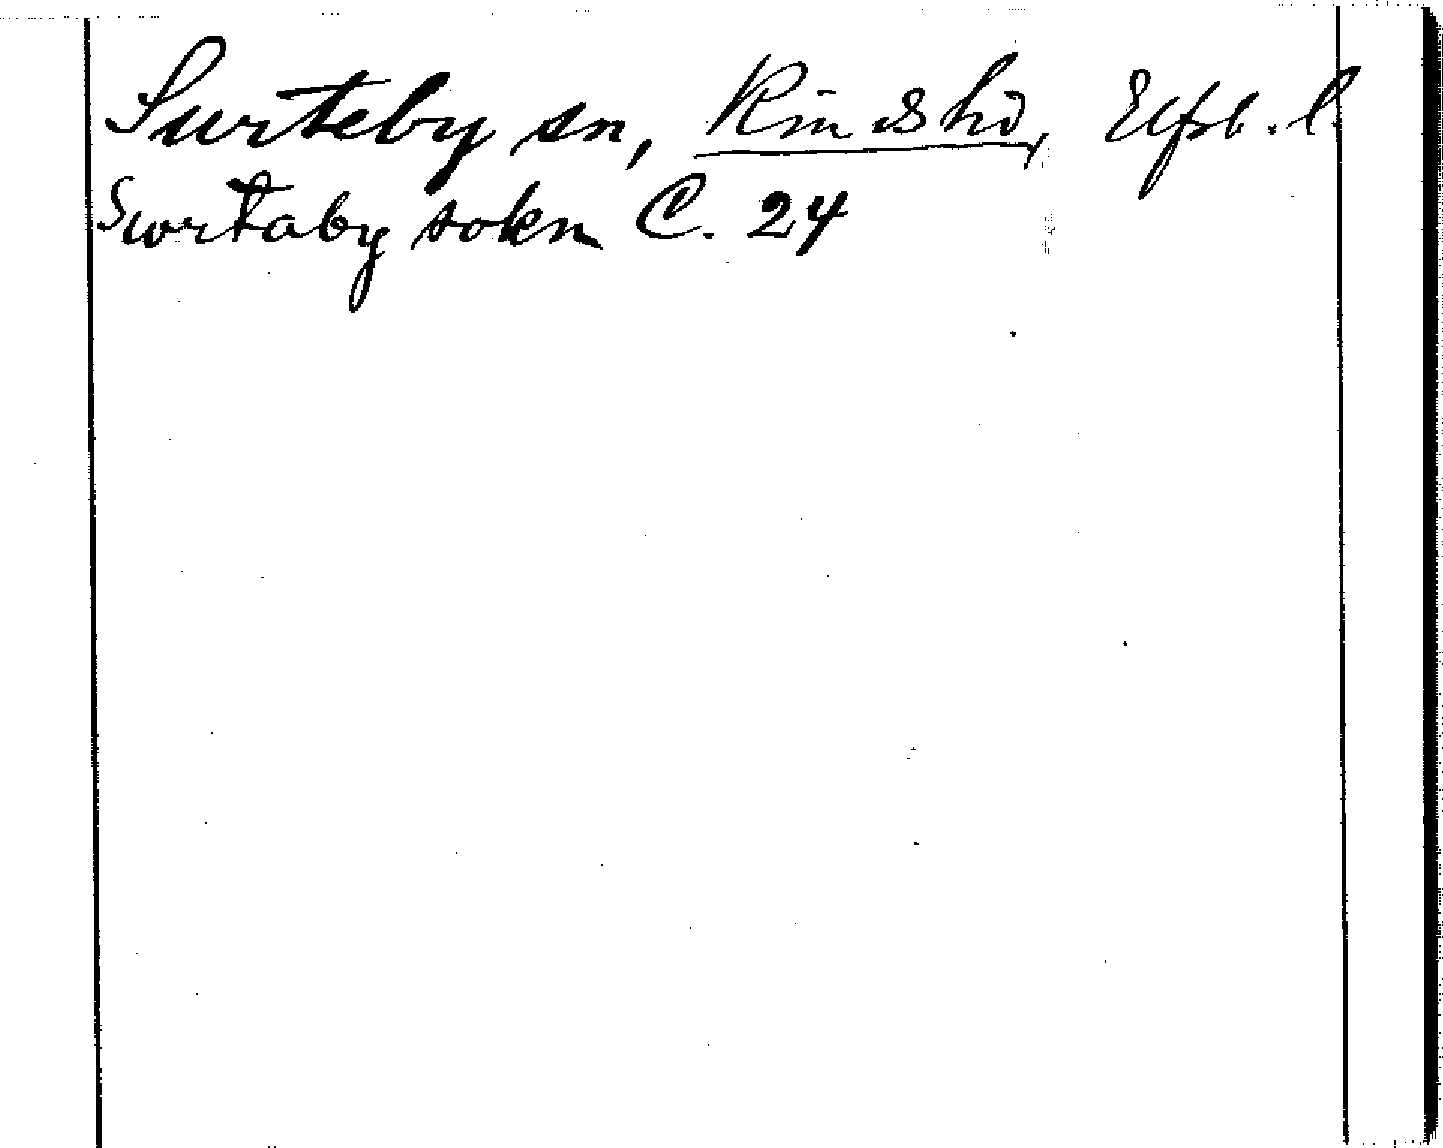 Surteby sn, Kinds hd, Elfsb. l.
Swrtaby sokn C. 24